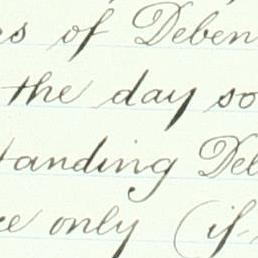 es of Deben
the day so
tanding Deb
ce only (if